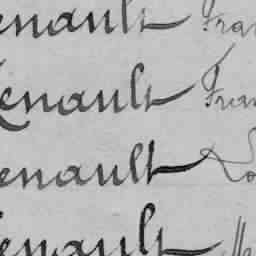 enault Fran
enault Fran
enault Lo
enault M